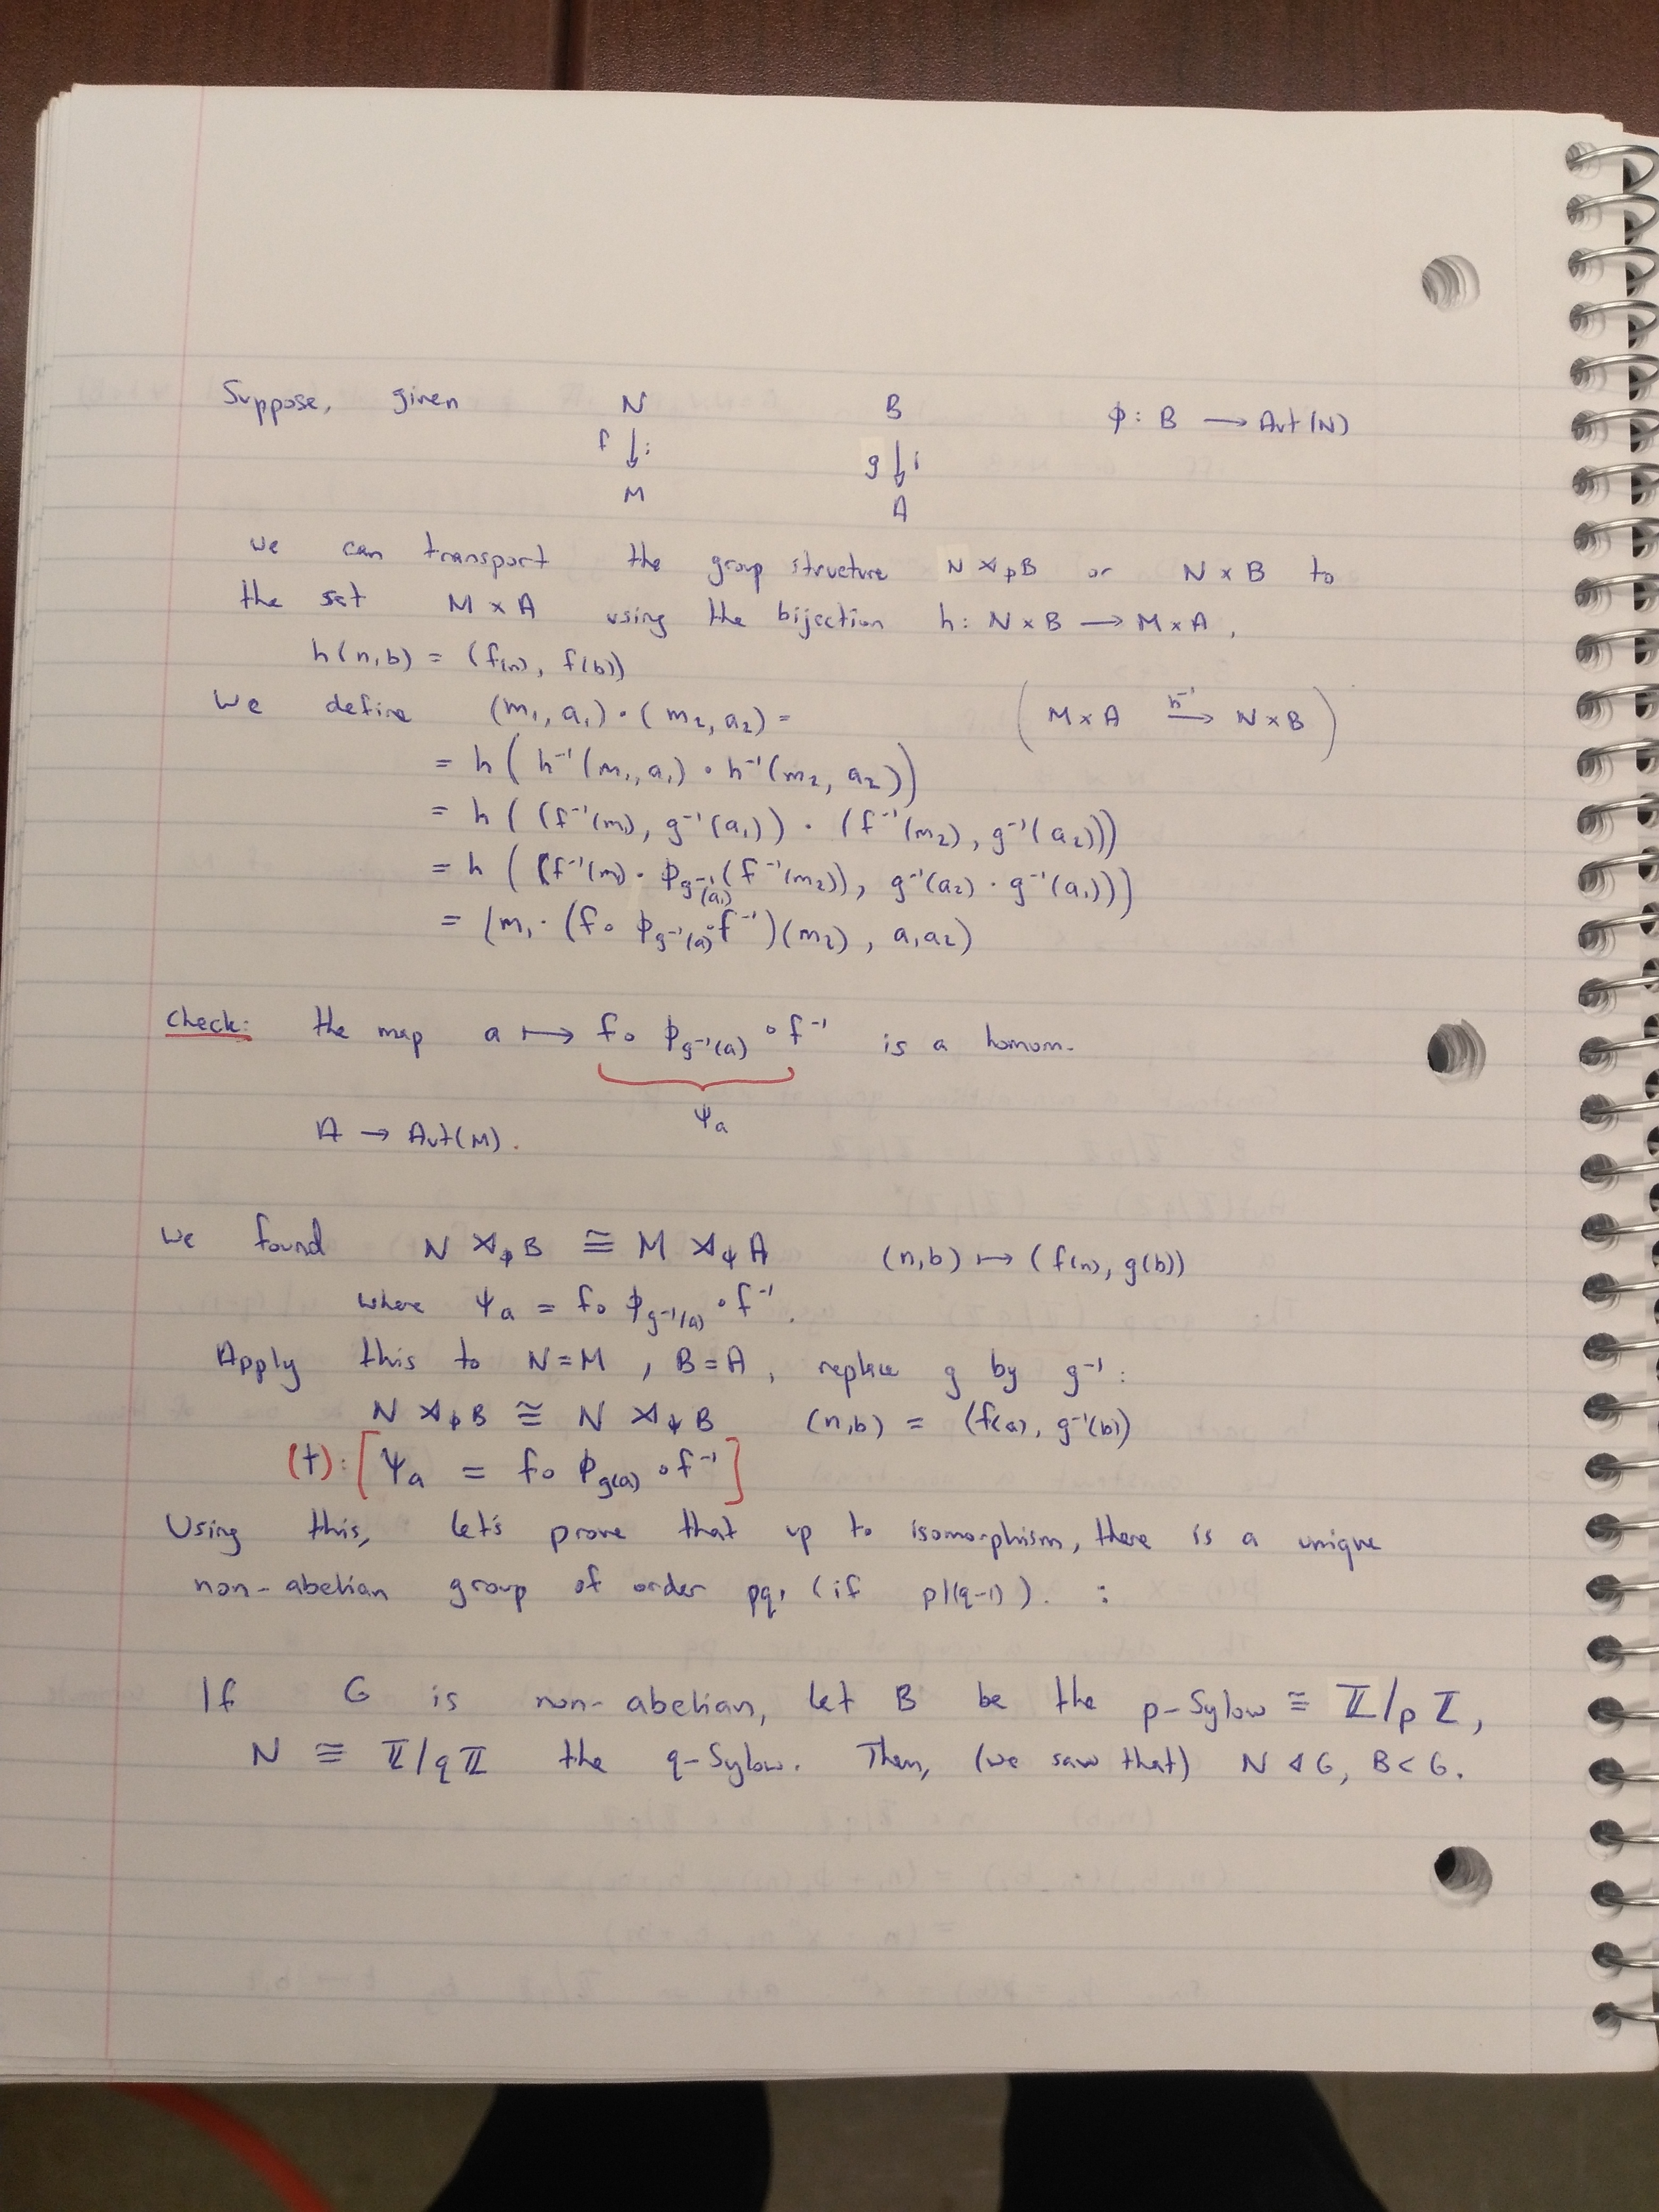 Suppose, given N B ϕ: B → Aut(N)
f ↓ i g ↓ i
M A
we can transport the group structure N ⋊ϕ B or N × B to
the set M × A using the bijection h: N × B → M × A,
h(n,b) = (f(n), f(b))
We define (m₁, a₁) · (m₂, a₂) = (M × A h⁻¹→ N × B)
= h(h⁻¹(m₁, a₁) · h⁻¹(m₂, a₂))
= h((f⁻¹(m₁), g⁻¹(a₁)) · (f⁻¹(m₂), g⁻¹(a₂)))
= h((f⁻¹(m₁) · ϕ_{g⁻¹(a₁)}(f⁻¹(m₂)), g⁻¹(a₂) · g⁻¹(a₁)))
= (m₁ · (f ∘ ϕ_{g⁻¹(a)} ∘ f⁻¹)(m₂), a₁a₂)
Check: the map a ↦ f ∘ ϕ_{g⁻¹(a)} ∘ f⁻¹ is a homom.
ψₐ
A → Aut(M).
We found N ⋊ϕ B ≅ M ⋊ψ A (n,b) ↦ (f(n), g(b))
where ψₐ = f ∘ ϕ_{g⁻¹(a)} ∘ f⁻¹.
Apply this to N = M, B = A, replace g by g⁻¹:
N ⋊ϕ B ≅ N ⋊ψ B (n,b) = (f(a), g⁻¹(b))
(†): [ψₐ = f ∘ ϕ_{g(a)} ∘ f⁻¹]
Using this, let's prove that up to isomorphism, there is a unique
non-abelian group of order pq, (if p|(q-1)). :
If G is non-abelian, let B be the p-Sylow ≅ ℤ/pℤ,
N ≅ ℤ/qℤ the q-Sylow. Then, (we saw that) N ⊲ G, B < G.